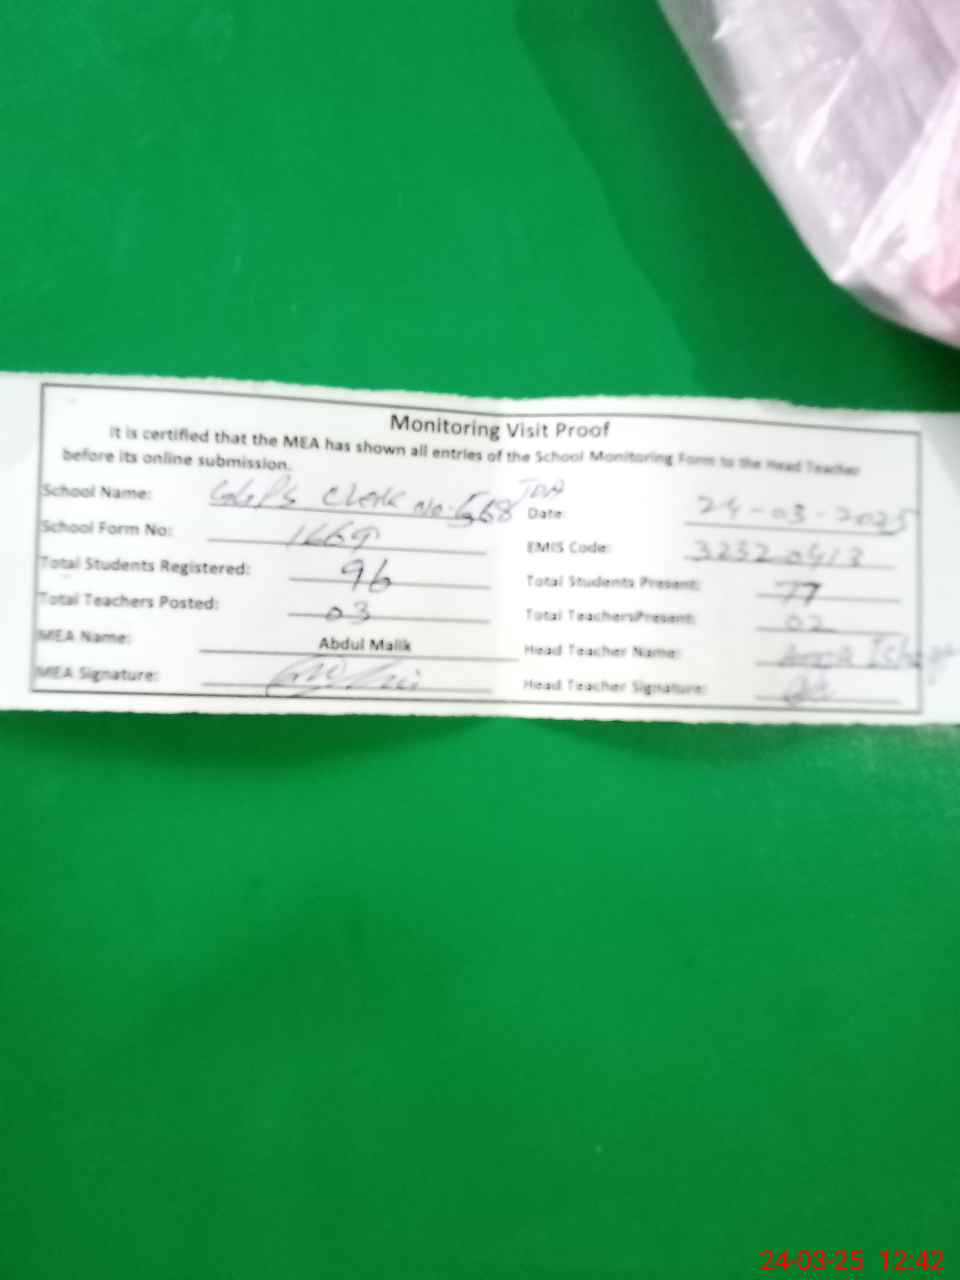 Monitoring Visit Proof
It is certified that the MEA has shown all entries of the School Monitoring Form to the Head Teacher
before its online submission.
School Name: GGPS Chak No. 568 TDA
Date: 24-03-2025
School Form No: 1669
EMIS Code: 32320413
Total Students Registered: 96
Total Students Present: 77
Total Teachers Posted: 03
Total TeachersPresent: 02
MEA Name: Abdul Malik
Head Teacher Name:
MEA Signature:
Head Teacher Signature:
24-03-25 12:42